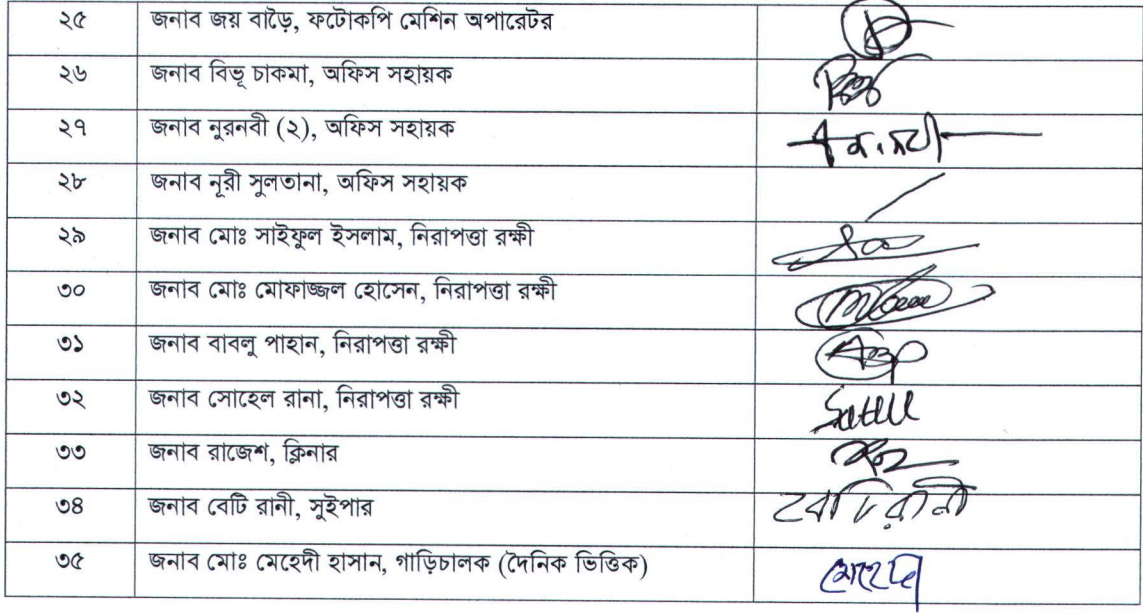 ২৫ জনাব জয় বাড়ৈ, ফটোকপি মেশিন অপারেটর
২৬ জনাব বিভূ চাকমা, অফিস সহায়ক
২৭ জনাব নুরনবী (২), অফিস সহায়ক
২৮ জনাব নূরী সুলতানা, অফিস সহায়ক
২৯ জনাব মোঃ সাইফুল ইসলাম, নিরাপত্তা রক্ষী
৩০ জনাব মোঃ মোফাজ্জল হোসেন, নিরাপত্তা রক্ষী
৩১ জনাব বাবলু পাহান, নিরাপত্তা রক্ষী
৩২ জনাব সোহেল রানা, নিরাপত্তা রক্ষী
৩৩ জনাব রাজেশ, ক্লিনার
৩৪ জনাব বেটি রানী, সুইপার
৩৫ জনাব মোঃ মেহেদী হাসান, গাড়িচালক (দৈনিক ভিত্তিক) মেহেদি